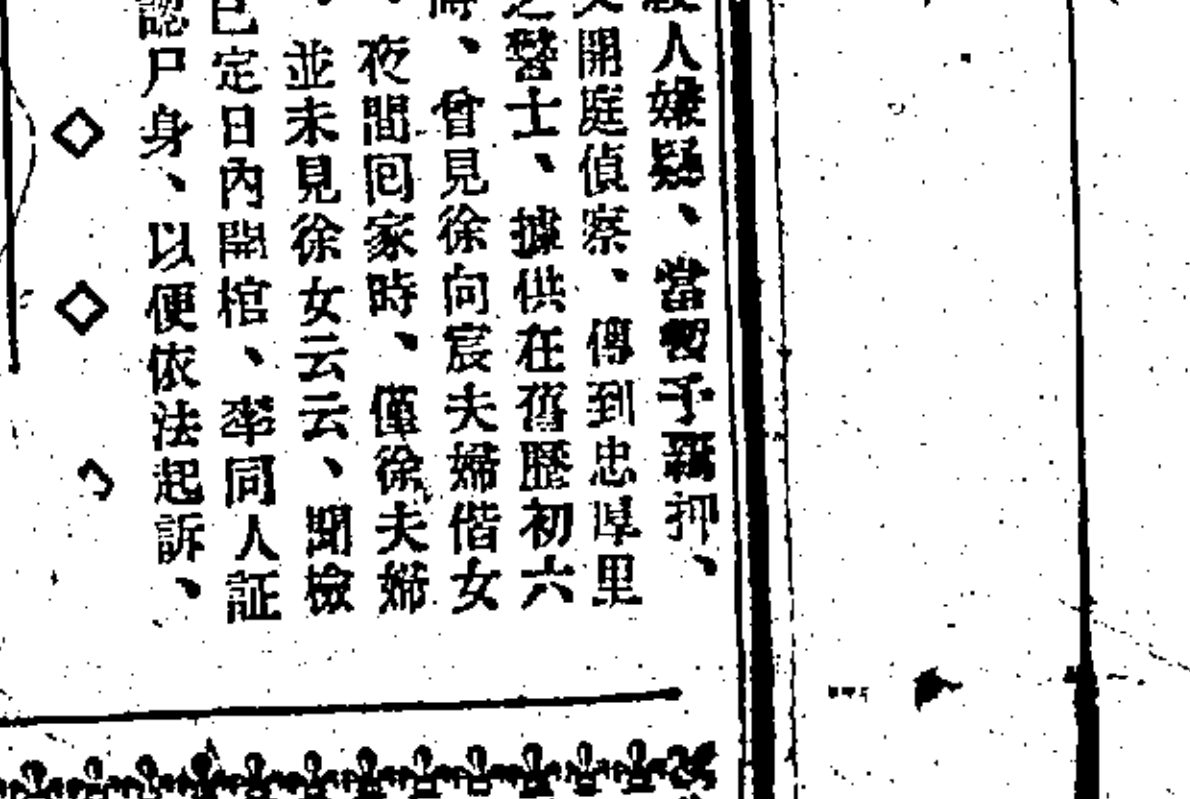 人嫌疑、當暫予覊押、
開庭偵察、傳到忠厚里
之警士、據供在舊歷初六
時、曾見徐向宸夫婦偕女
、夜間回家時、僅徐夫婦
、並未見徐女云云、聞檢
已定日內開棺、率同人証
認尸身、以便依法起訴、
◇◇